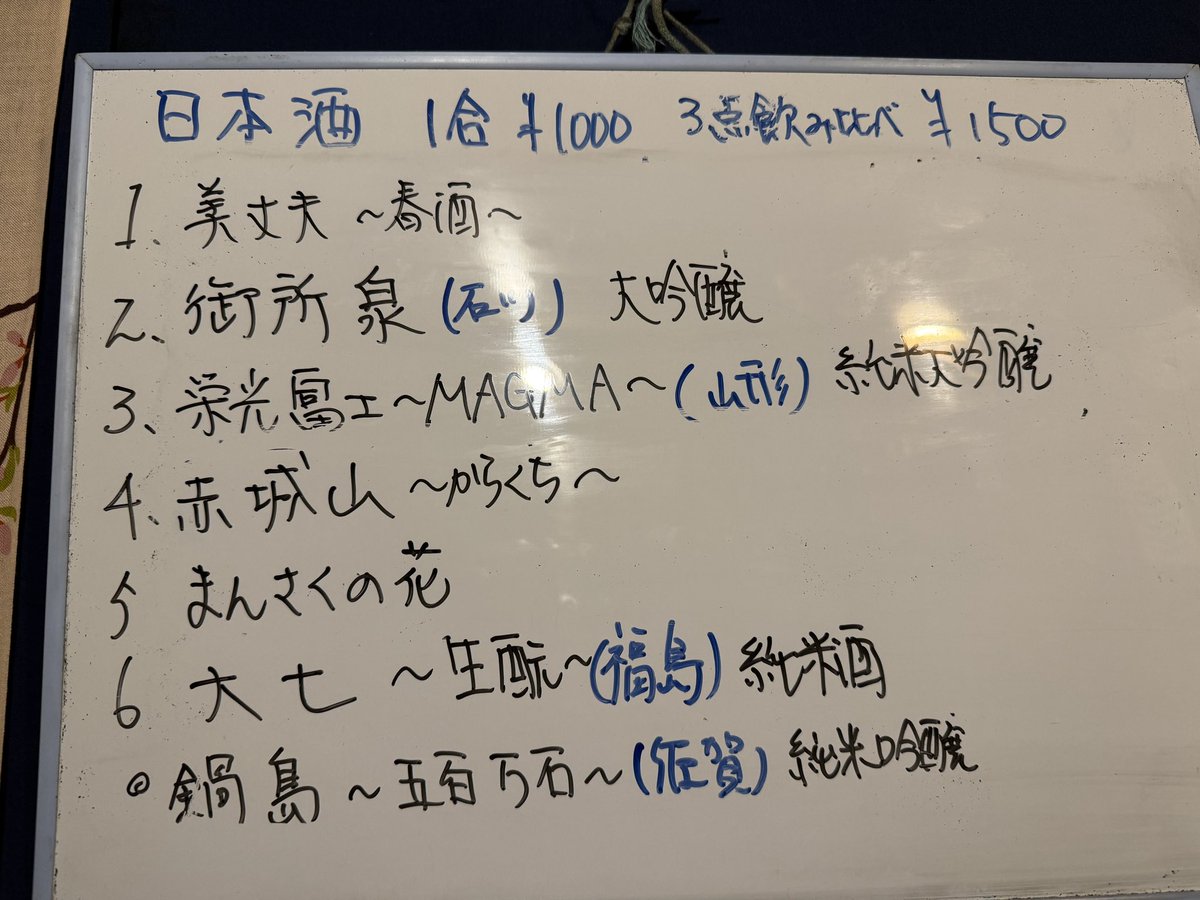 日本酒 1合 ¥1000 3点飲み比べ ¥1500
1、美丈夫 ~春酒~
2、御所泉 (石川) 大吟醸
3、栄光冨士~MAGMA~(山形) 純米大吟醸
4、赤城山 ~からくち~
5 まんさくの花
6 大七 ~生酛~(福島) 純米酒
◎ 鍋島 ~五百万石~(佐賀) 純米吟醸